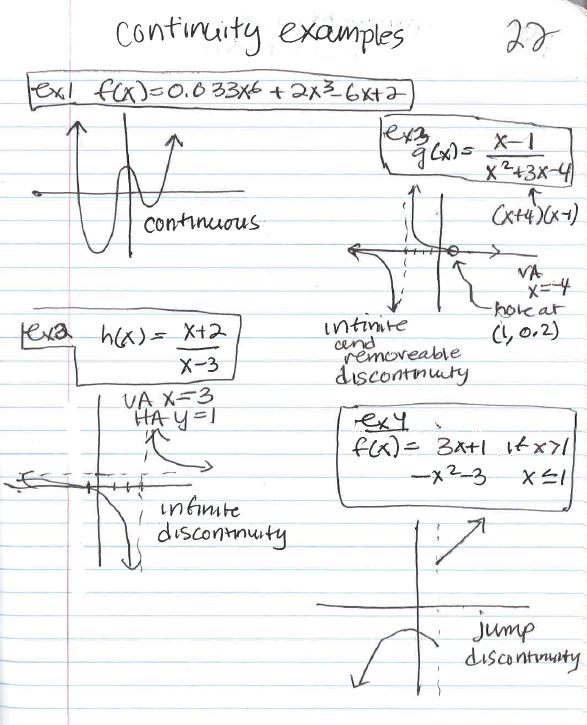 continuity examples
22
ex1 f(x)=0.033x⁶ + 2x³-6x+2
continuous
ex3
g(x)= x-1 / x²+3x-4
(x+4)(x-1)
VA
x=-4
hole at
(1, 0.2)
infinite
and
removeable
discontinuity
ex2 h(x) = x+2 / x-3
VA x=3
HA y=1
infinite
discontinuity
ex4
f(x)= 3x+1 if x>1
-x²-3 x≤1
jump
discontinuity